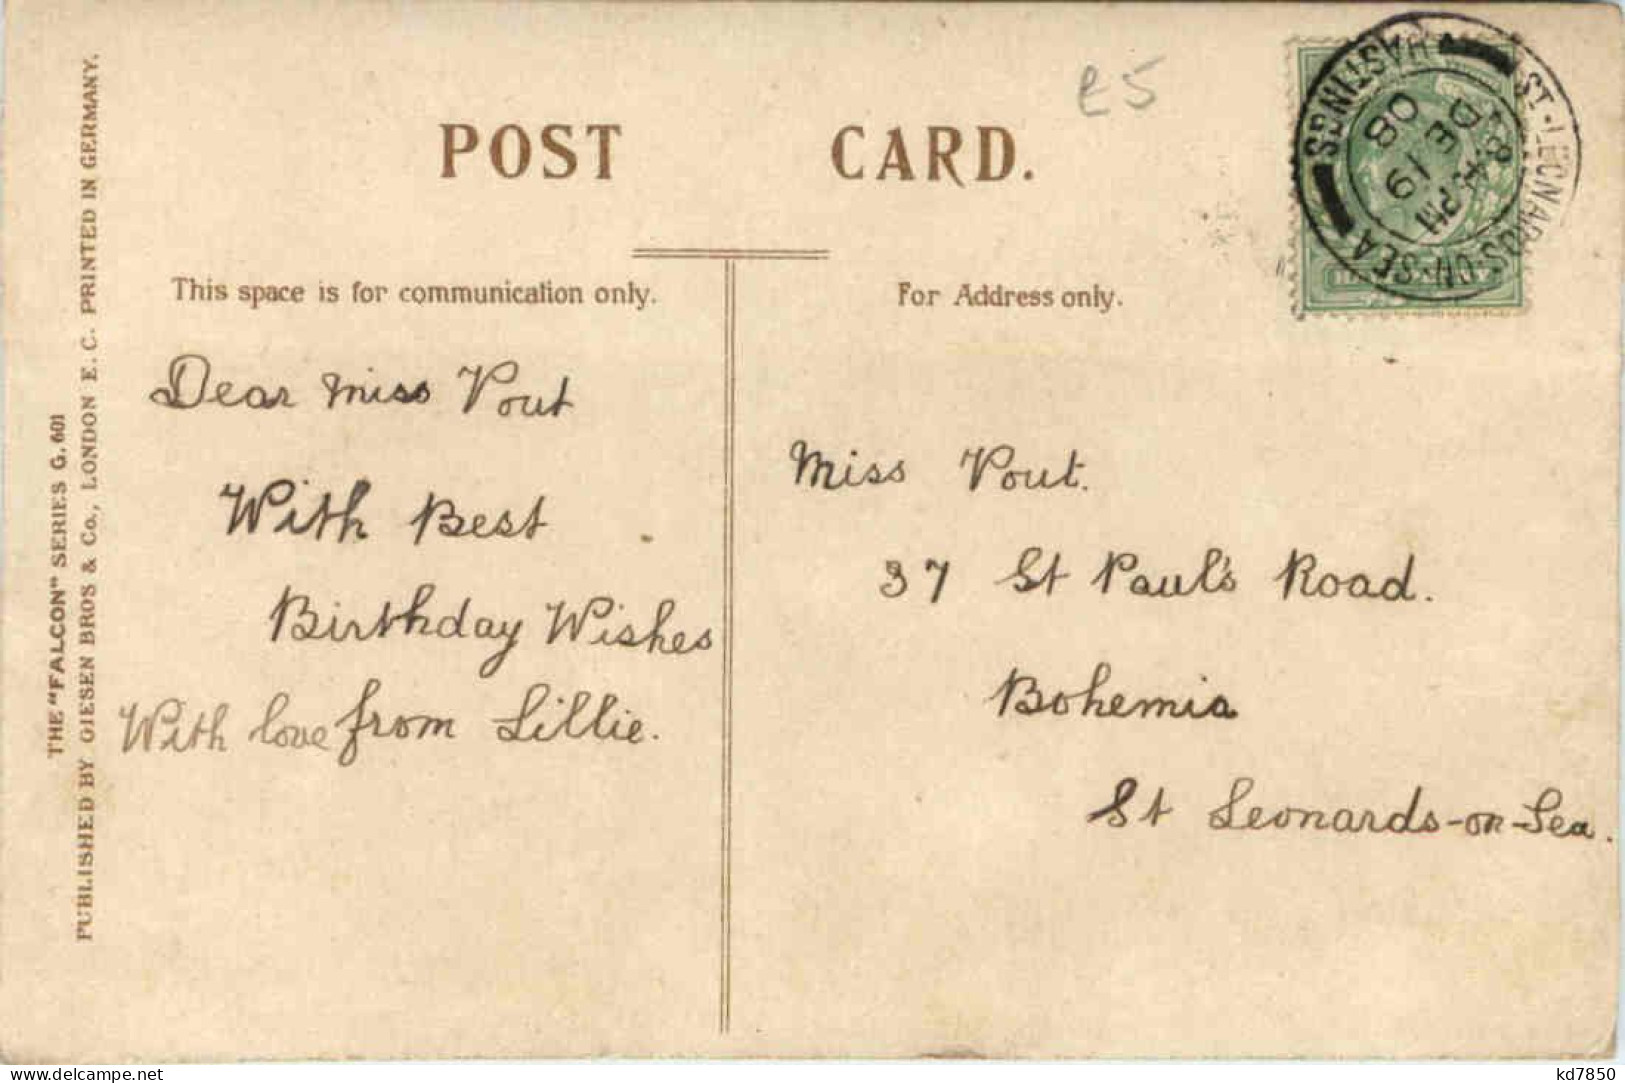 POST CARD.
£5
This space is for communication only.
For Address only.
Dear Miss Pout
With Best
Birthday Wishes
With love from Lillie.
Miss Pout.
37 St Paul's Road.
Bohemia
St Leonards-on-Sea.
THE "FALCON" SERIES G. 601
PUBLISHED BY GIESEN BROS & Co., LONDON E. C. PRINTED IN GERMANY.
HASTINGS
ST. LEONARDS-ON-SEA
PM
DE 19
08
www.delcampe.net
kd7850